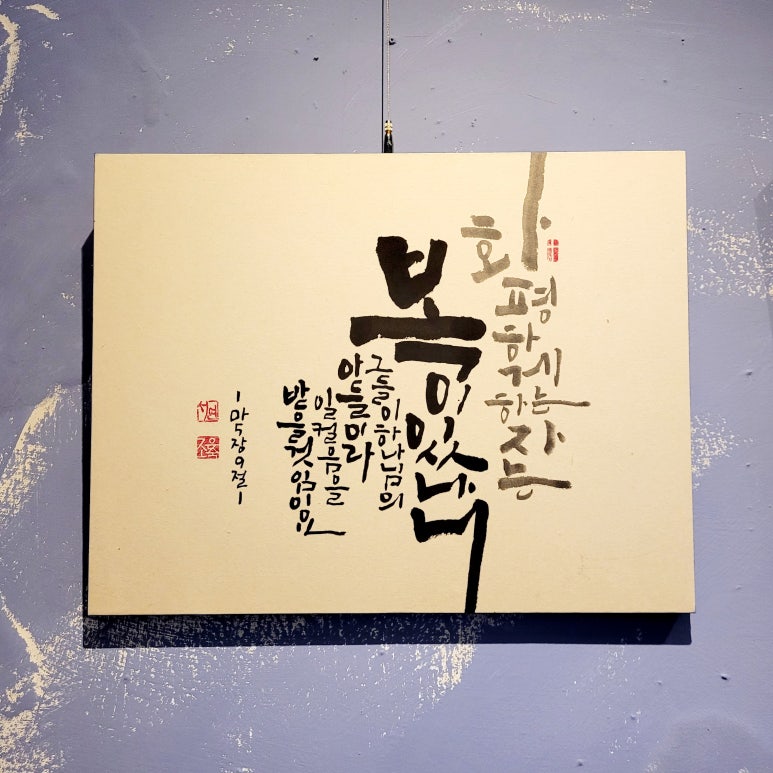 화평하게
하는
자는
복이 있나니
그들이 하나님의
아들이라
일컬음을
받을 것임이요
-마5장9절-